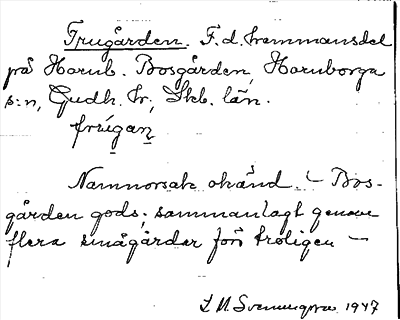 Frugården. F.d. hemmansdel
på Hornb. Bosgården, Hornborga
s:n, Gudh. hr, Skb. län.
frúgan
Namnorsak okänd. – Bos-
gården gods, sammanlagt genom
flera smågårdar förr troligen –
1947